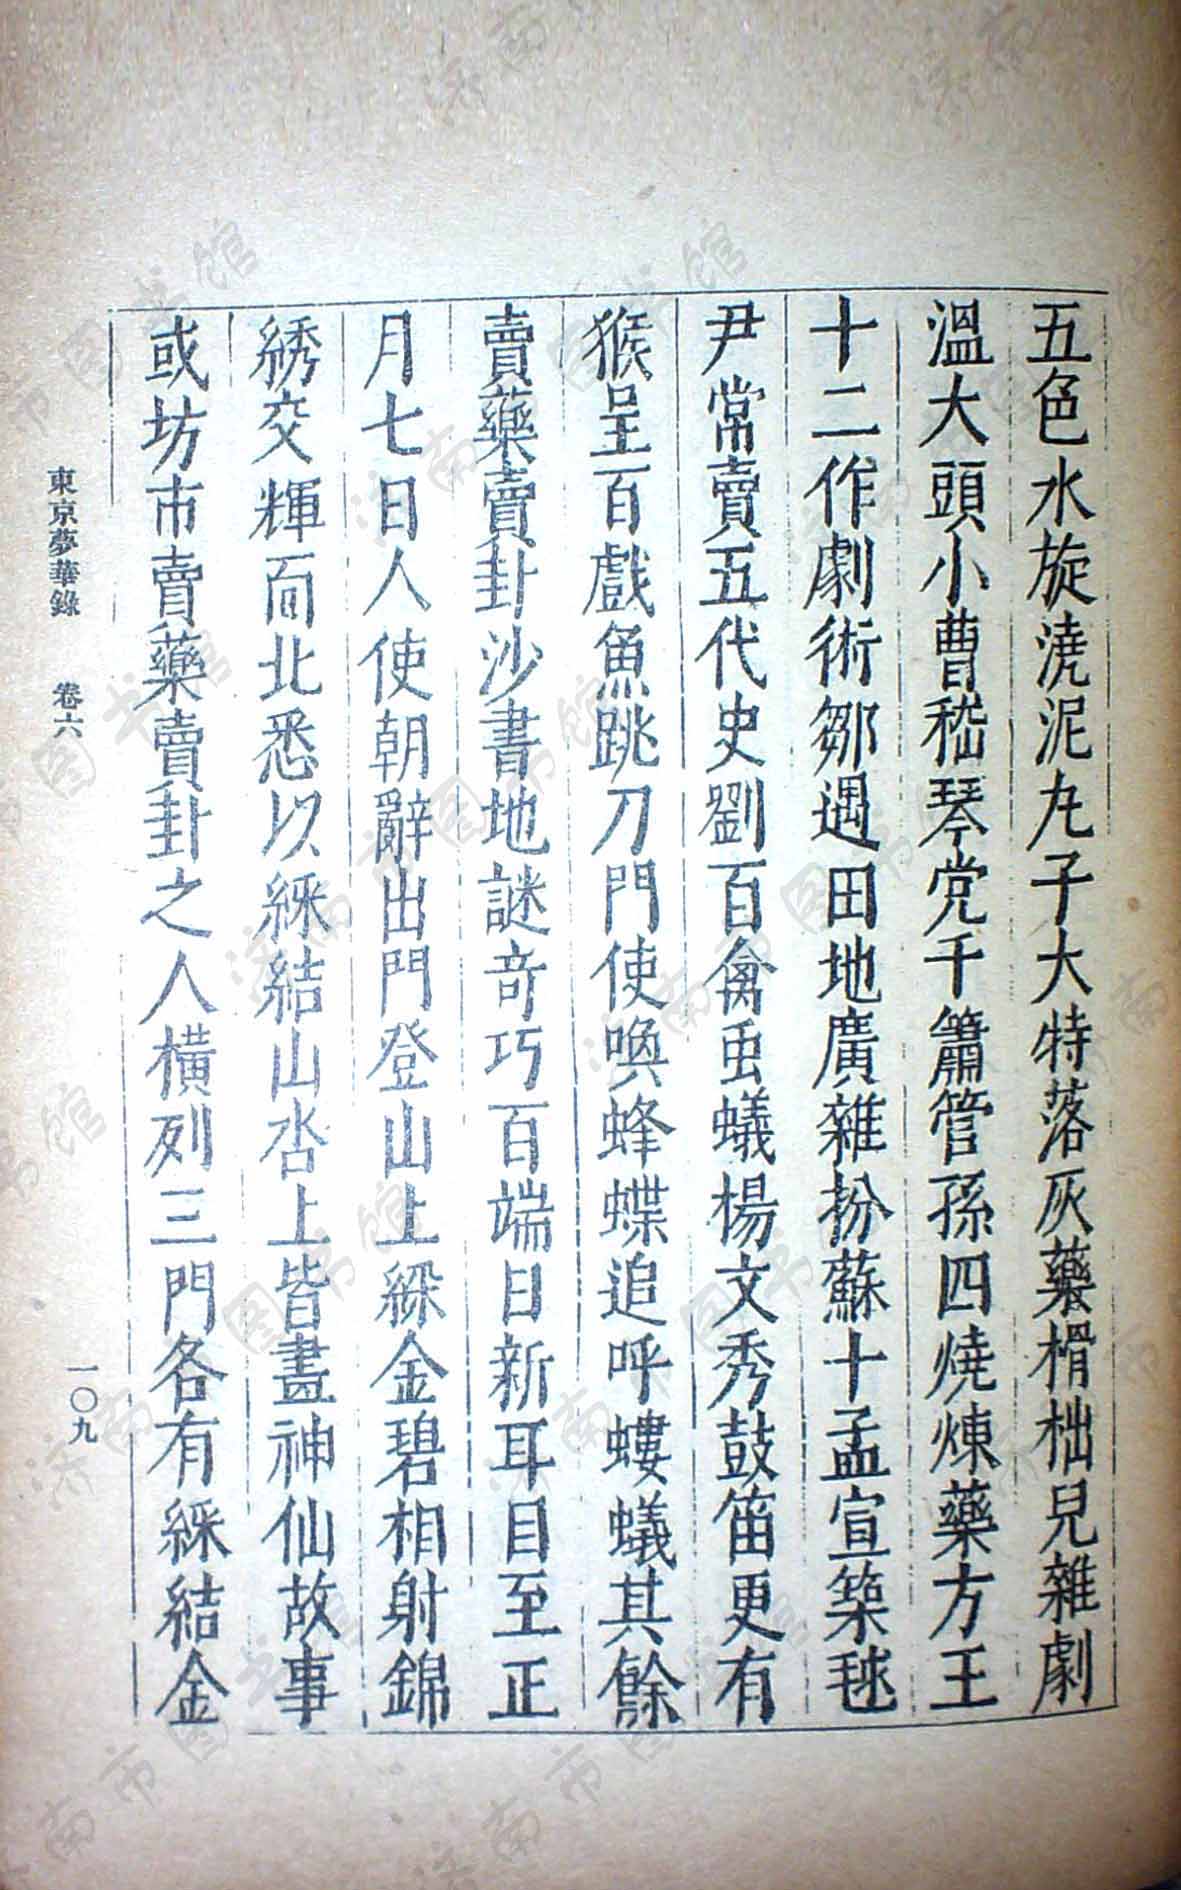 五色水旋澆泥丸子大特落灰藥榾柮兒雜劇
溫大頭小曹嵇琴党千簫管孫四燒煉藥方王
十二作劇術鄒遇田地廣雜扮蘇十孟宣築毬
尹常賣五代史劉百禽蟲蟻楊文秀鼓笛更有
猴呈百戲魚跳刀門使喚蜂蝶追呼螻蟻其餘
賣藥賣卦沙書地謎奇巧百端日新耳目至正
月七日人使朝辭出門登山上綵金碧相射錦
綉交輝面北悉以綵結山沓上皆畫神仙故事
或坊市賣藥賣卦之人橫列三門各有綵結金
東京夢華錄 卷六 一〇九
济南市图书馆